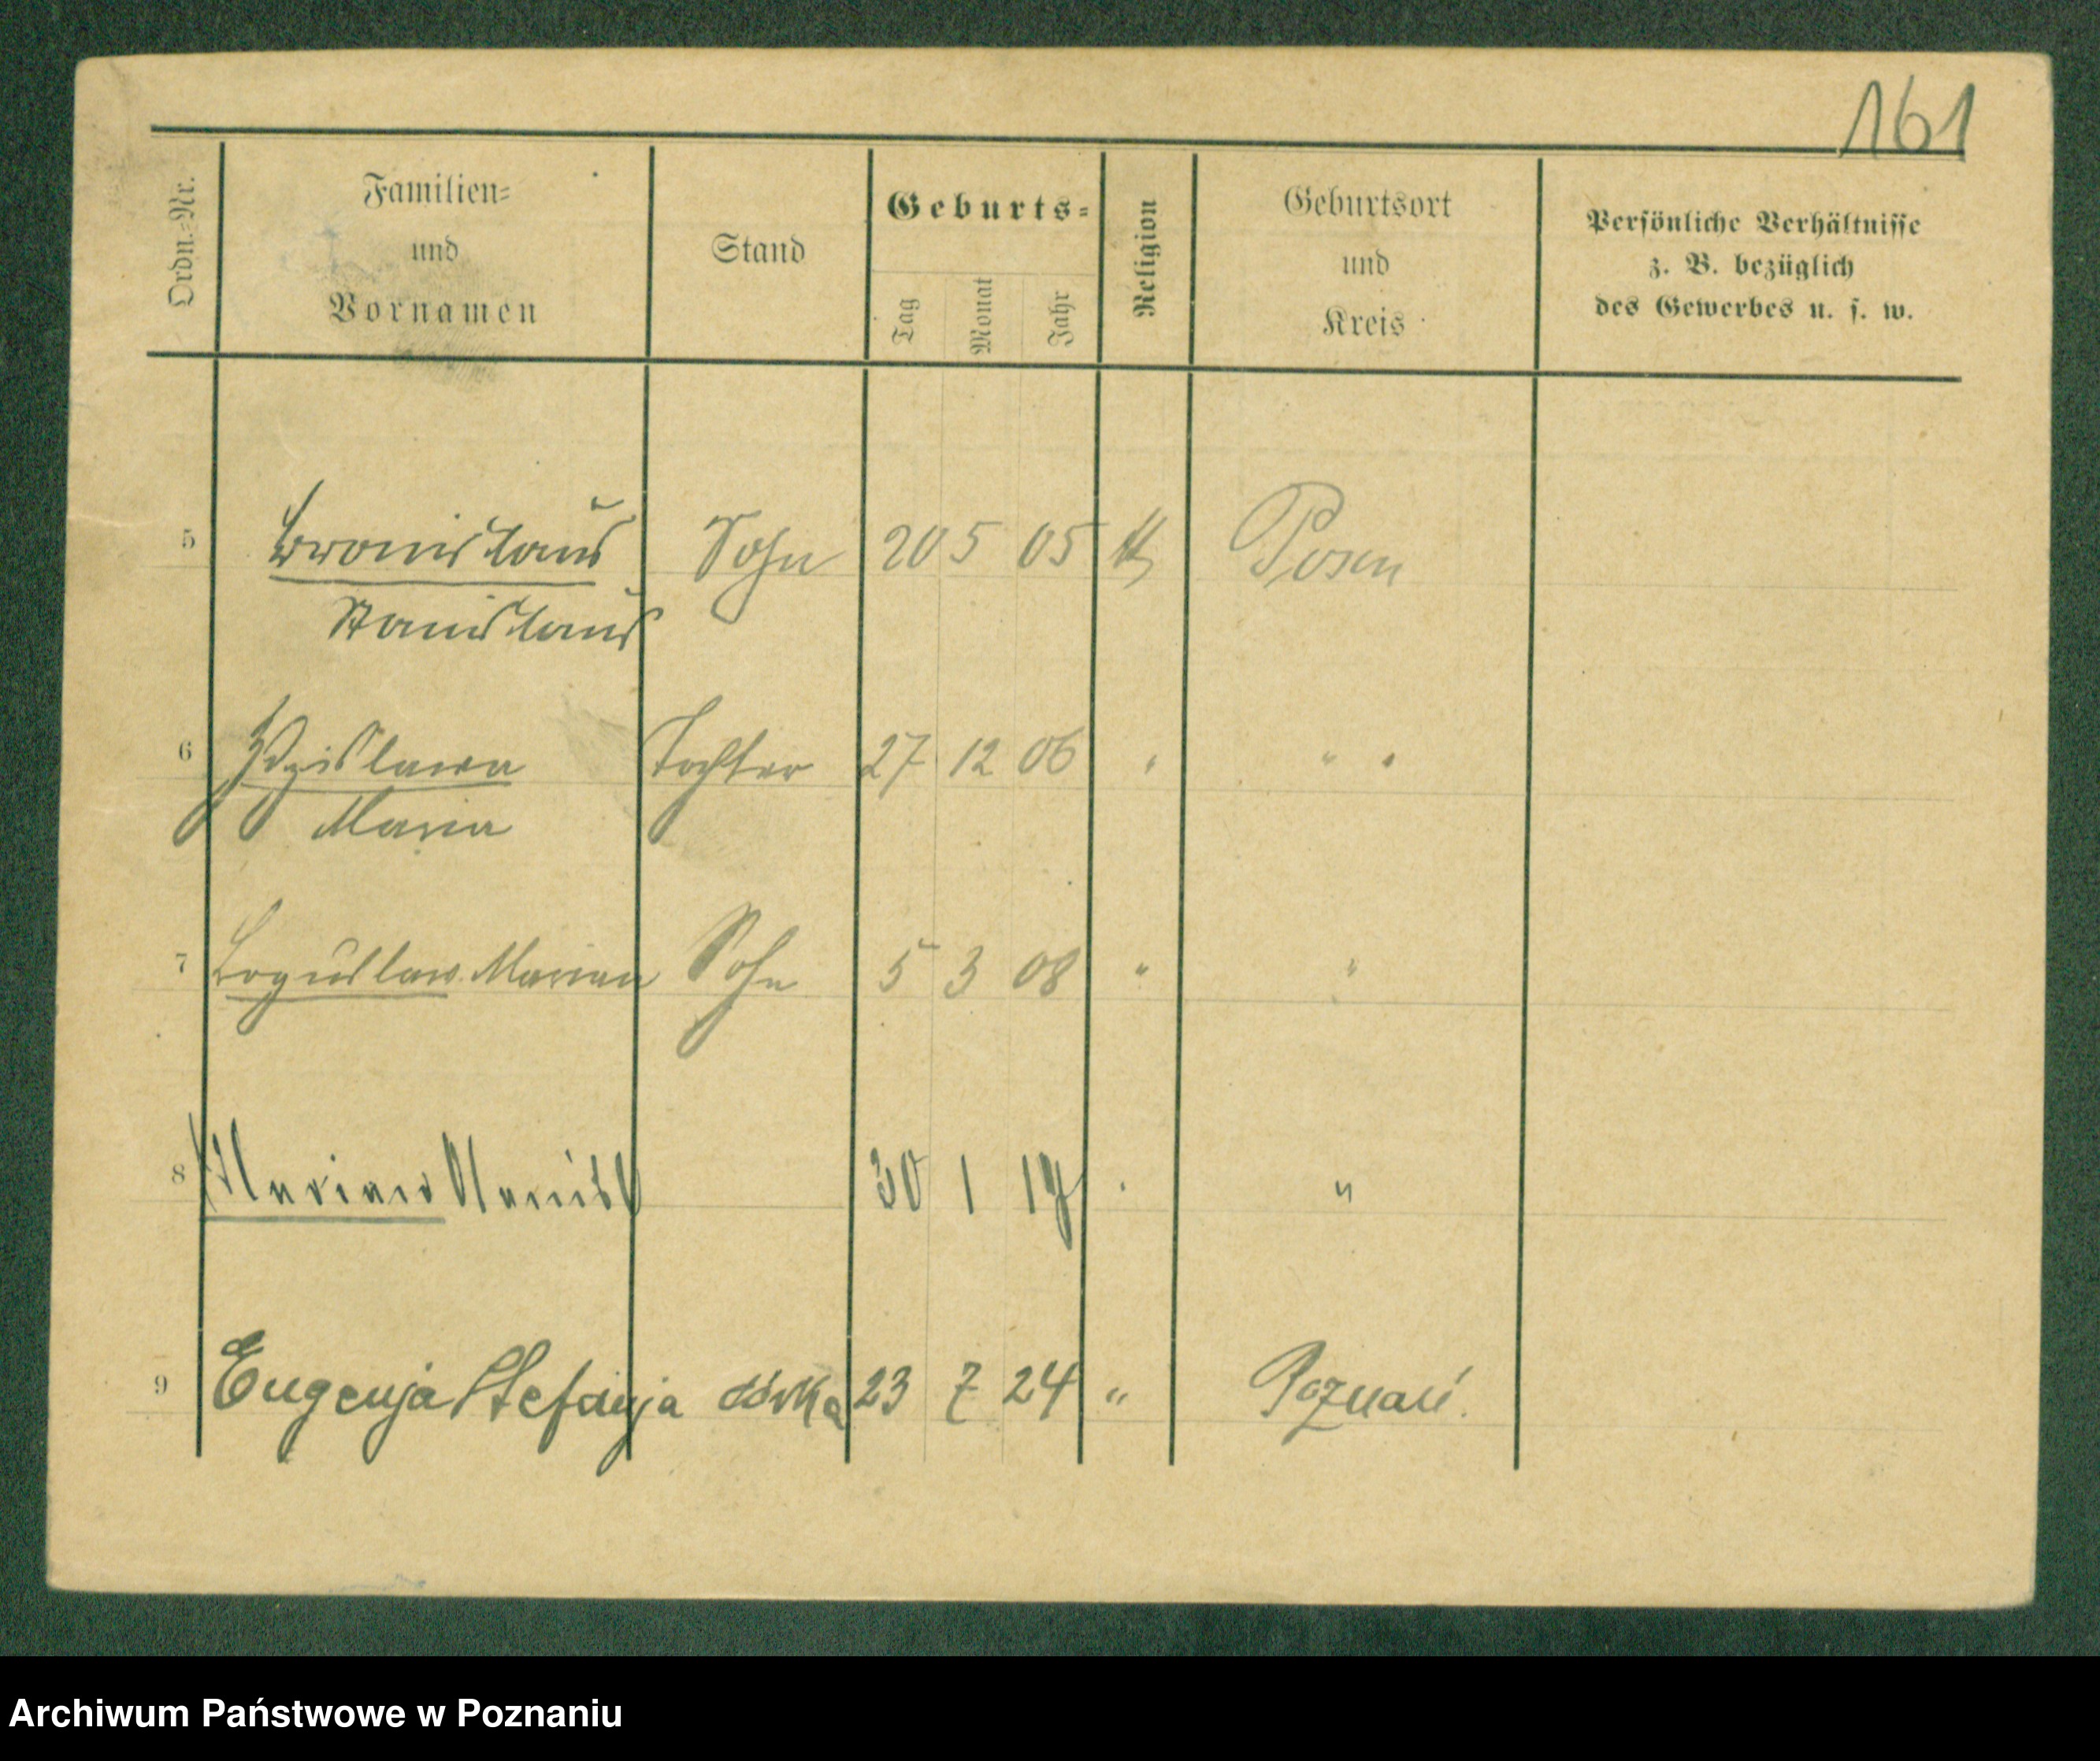 161
Ordn.-Nr.
Familien-
und
Vornamen
Stand
Geburts-
Tag
Monat
Jahr
Religion
Geburtsort
und
Kreis
Persönliche Verhältnisse
z. B. bezüglich
des Gewerbes u. s. w.
5 Bronislaus Sohn 20 5 05 Posen
Stanislaus
6 Zdzislawa Tochter 27 12 06 " " "
Maria
7 Boguslaw Marian Sohn 5 3 08 " "
8 30 1 "
9 Eugenja Stefanja córka 23 7 24 " Poznań.
Archiwum Państwowe w Poznaniu